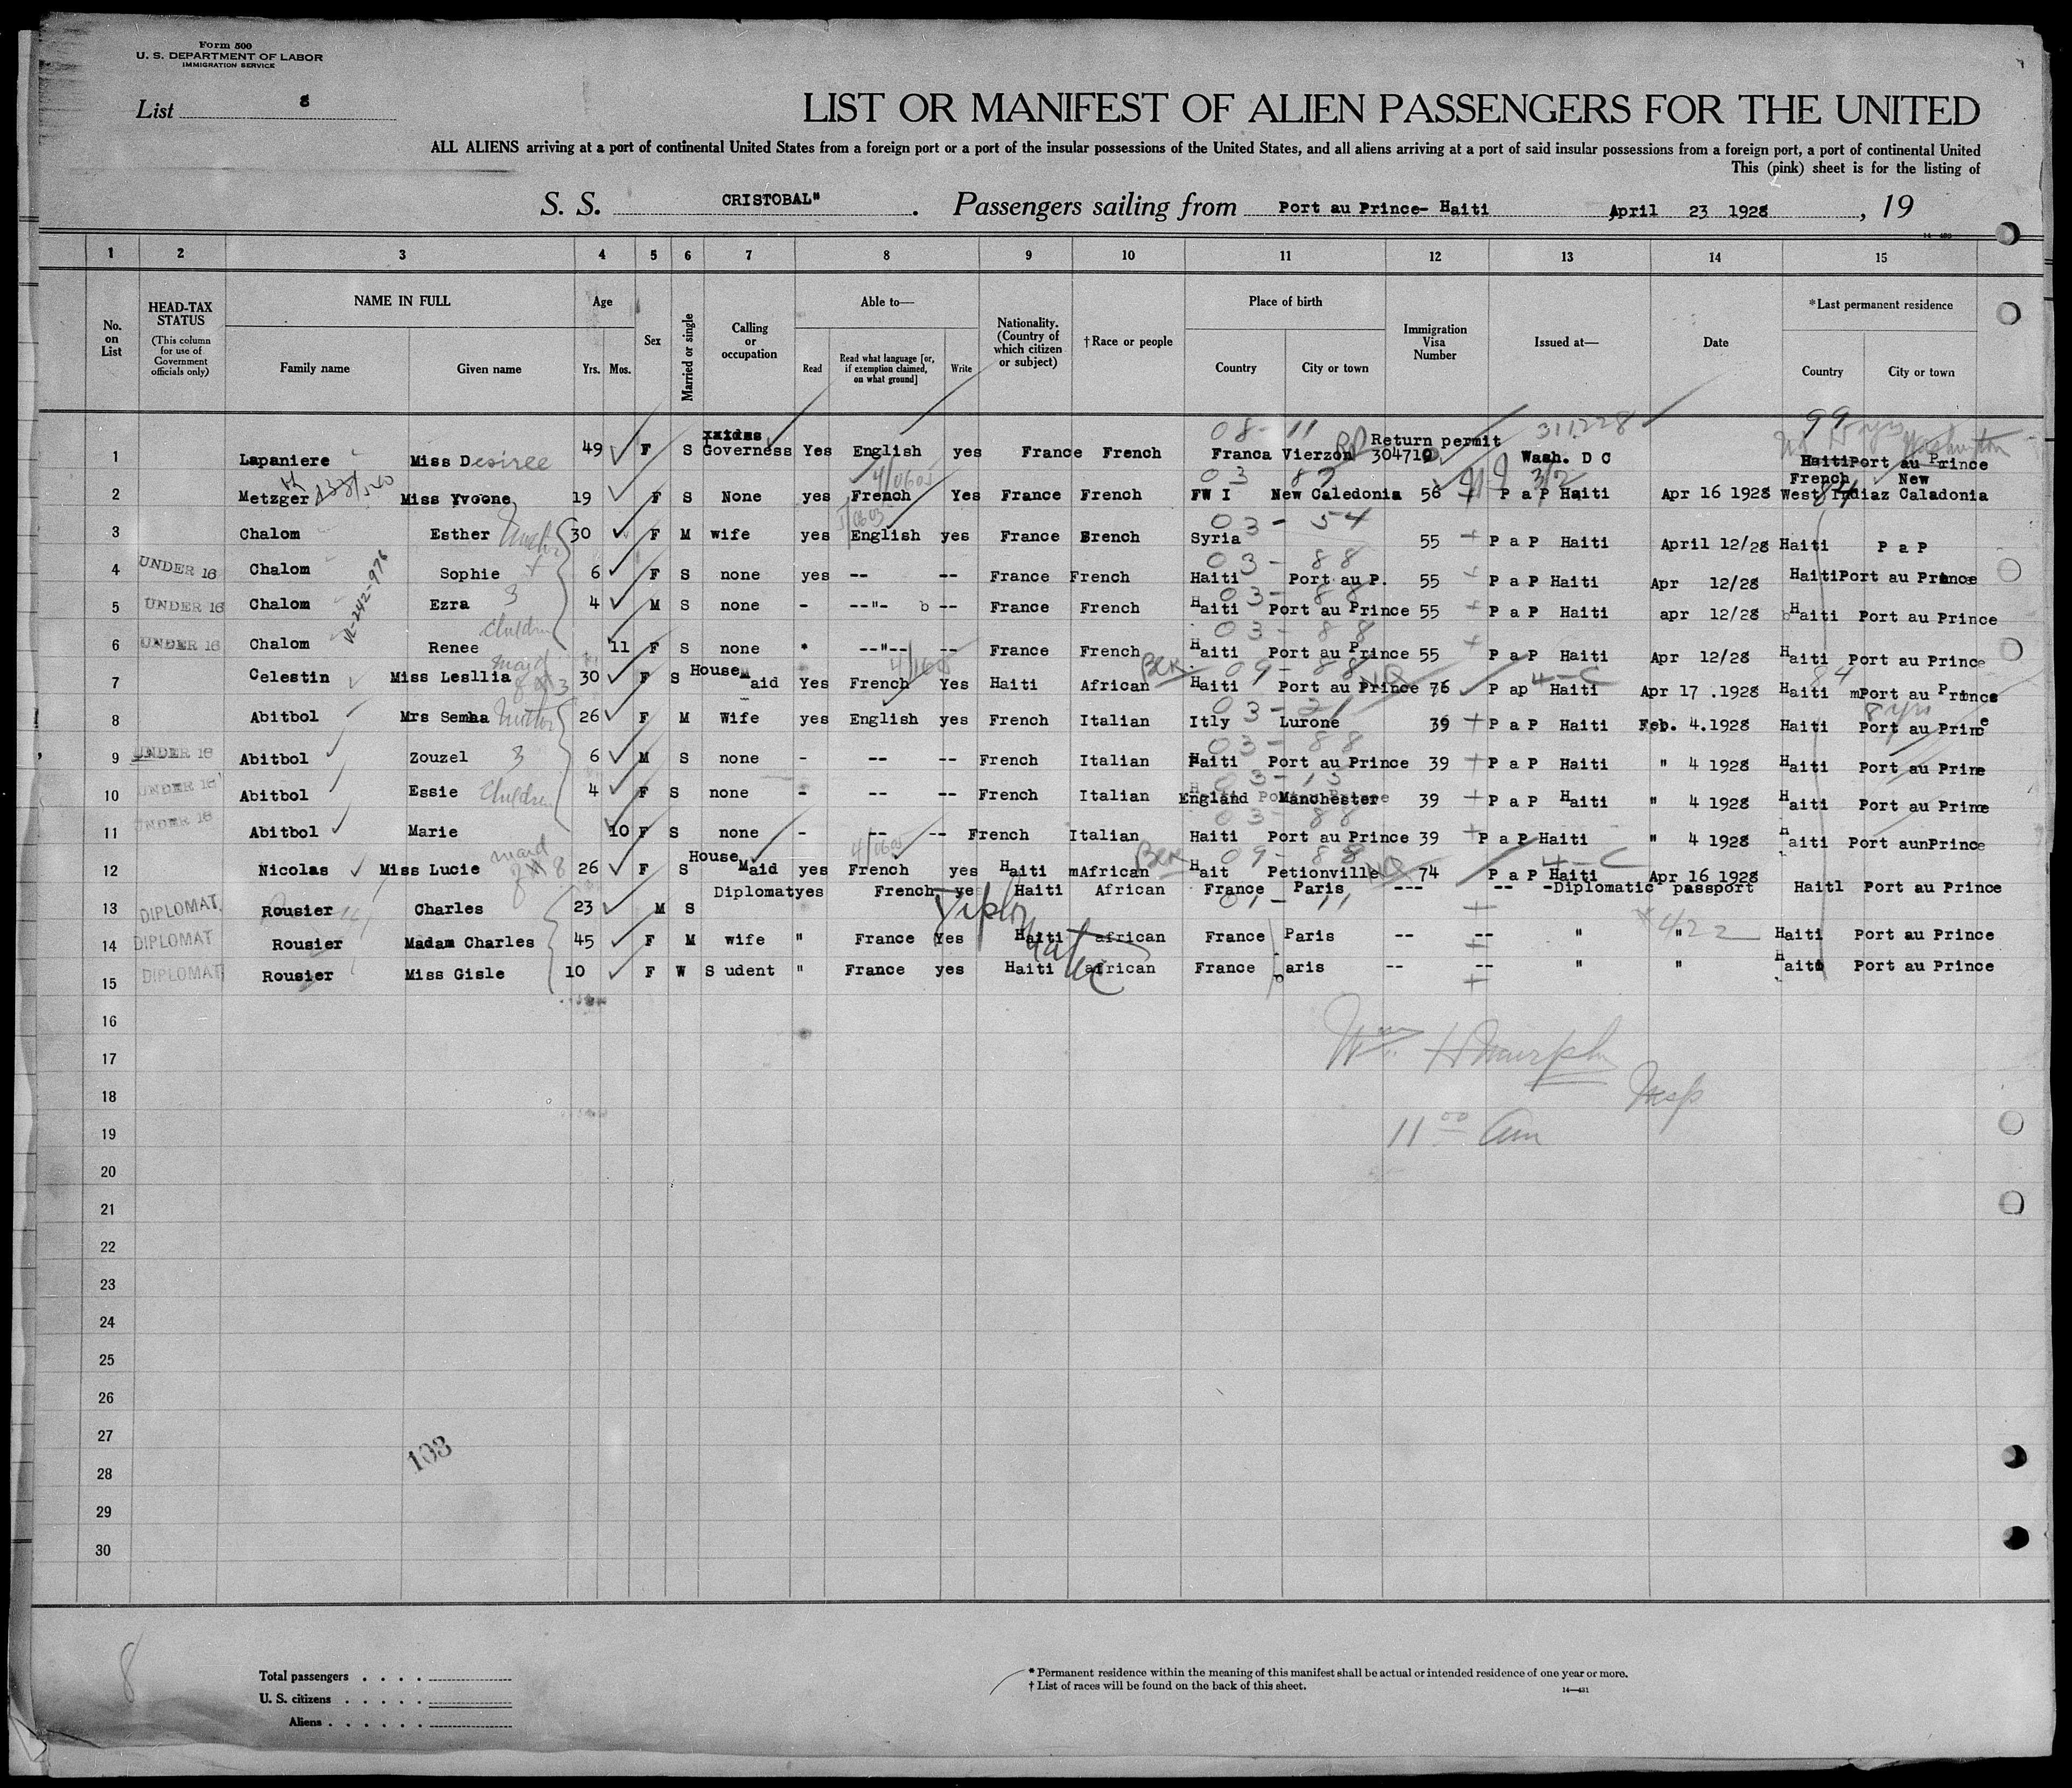 Form 500
U. S. DEPARTMENT OF LABOR
IMMIGRATION SERVICE
List 8
LIST OR MANIFEST OF ALIEN PASSENGERS FOR THE UNITED
ALL ALIENS arriving at a port of continental United States from a foreign port or a port of the insular possessions of the United States, and all aliens arriving at a port of said insular possessions from a foreign port, a port of continental United
This (pink) sheet is for the listing of
S. S. CRISTOBAL". Passengers sailing from Port au Prince- Haiti April 23 1928, 19
1 2 3 4 5 6 7 8 9 10 11 12 13 14 15
No. on List
HEAD-TAX STATUS (This column for use of Government officials only)
NAME IN FULL Family name Given name
Age Yrs. Mos.
Sex
Married or single
Calling or occupation
Able to— Read Read what language [or, if exemption claimed, on what ground] Write
Nationality. (Country of which citizen or subject)
†Race or people
Place of birth Country City or town
Immigration Visa Number
Issued at—
Date
*Last permanent residence Country City or town
08-11 311228 99
1 Lapaniere Miss Desiree 49 F S Governess Yes English yes France French Franca Vierzon Return permit 304710 Wash. D C Haiti Port au Prince Washington
03 87
2 Metzger Miss Yvoone 19 F S None yes French Yes France French FW I New Caledonia 56 P a P Haiti Apr 16 1928 French West Indiaz New Caladonia
03-54
3 Chalom Esther 30 F M wife yes English yes France Brench Syria 55 P a P Haiti April 12/28 Haiti P a P
03-88
4 UNDER 16 Chalom Sophie 6 F S none yes -- -- France French Haiti Port au P. 55 P a P Haiti Apr 12/28 Haiti Port au Prince
03-88
5 UNDER 16 Chalom Ezra 3 4 M S none - --"- b -- France French Haiti Port au Prince 55 P a P Haiti apr 12/28 Haiti Port au Prince
03-88
6 UNDER 16 Chalom Renee Children 11 F S none --"-- -- France French Haiti Port au Prince 55 P a P Haiti Apr 12/28 Haiti Port au Prince
09-88
7 Celestin Miss Lesllia maid 30 F S House Maid Yes French Yes Haiti African Blk Haiti Port au Prince 76 P ap Haiti 4-C Apr 17 .1928 Haiti mPort au Prince
03-31 8 yrs
8 Abitbol Mrs Semha mother 26 F M Wife yes English yes French Italian Itly Lurone 39 P a P Haiti Feb. 4.1928 Haiti Port au Prince
03-88
9 UNDER 16 Abitbol Zouzel 3 6 M S none - -- -- French Italian Haiti Port au Prince 39 P a P Haiti " 4 1928 Haiti Port au Prine
03-15
10 UNDER 16 Abitbol Essie Children 4 F S none - -- -- French Italian England Manchester 39 P a P Haiti " 4 1928 Haiti Port au Prine
03-88
11 UNDER 16 Abitbol Marie 10 F S none - -- -- French Italian Haiti Port au Prince 39 P a P Haiti " 4 1928 Haiti Port aunPrince
09-88
12 Nicolas Miss Lucie maid 26 F S House Maid yes French yes Haiti mAfrican Blk Hait Petionville 74 P a P Haiti 4-C Apr 16 1928
13 DIPLOMAT Rousier Charles 23 M S Diplomat yes French ye Haiti African France Paris --- -- -Diplomatic passport Haitl Port au Prince
01-11
14 DIPLOMAT Rousier Madam Charles 45 F M wife " France Yes Haiti african France Paris -- -- " " Haiti Port au Prince
15 DIPLOMAT Rousier Miss Gisle 10 F W S udent " France yes Haiti african France Paris -- -- " " Haiti Port au Prince
16
Wm H Murphy
17
18 Insp
19 11 00 am
20
21
22
23
24
25
26
27
103
28
29
30
8
Total passengers . . . .
U. S. citizens . . . . .
Aliens . . . . . .
* Permanent residence within the meaning of this manifest shall be actual or intended residence of one year or more.
† List of races will be found on the back of this sheet.
14—431